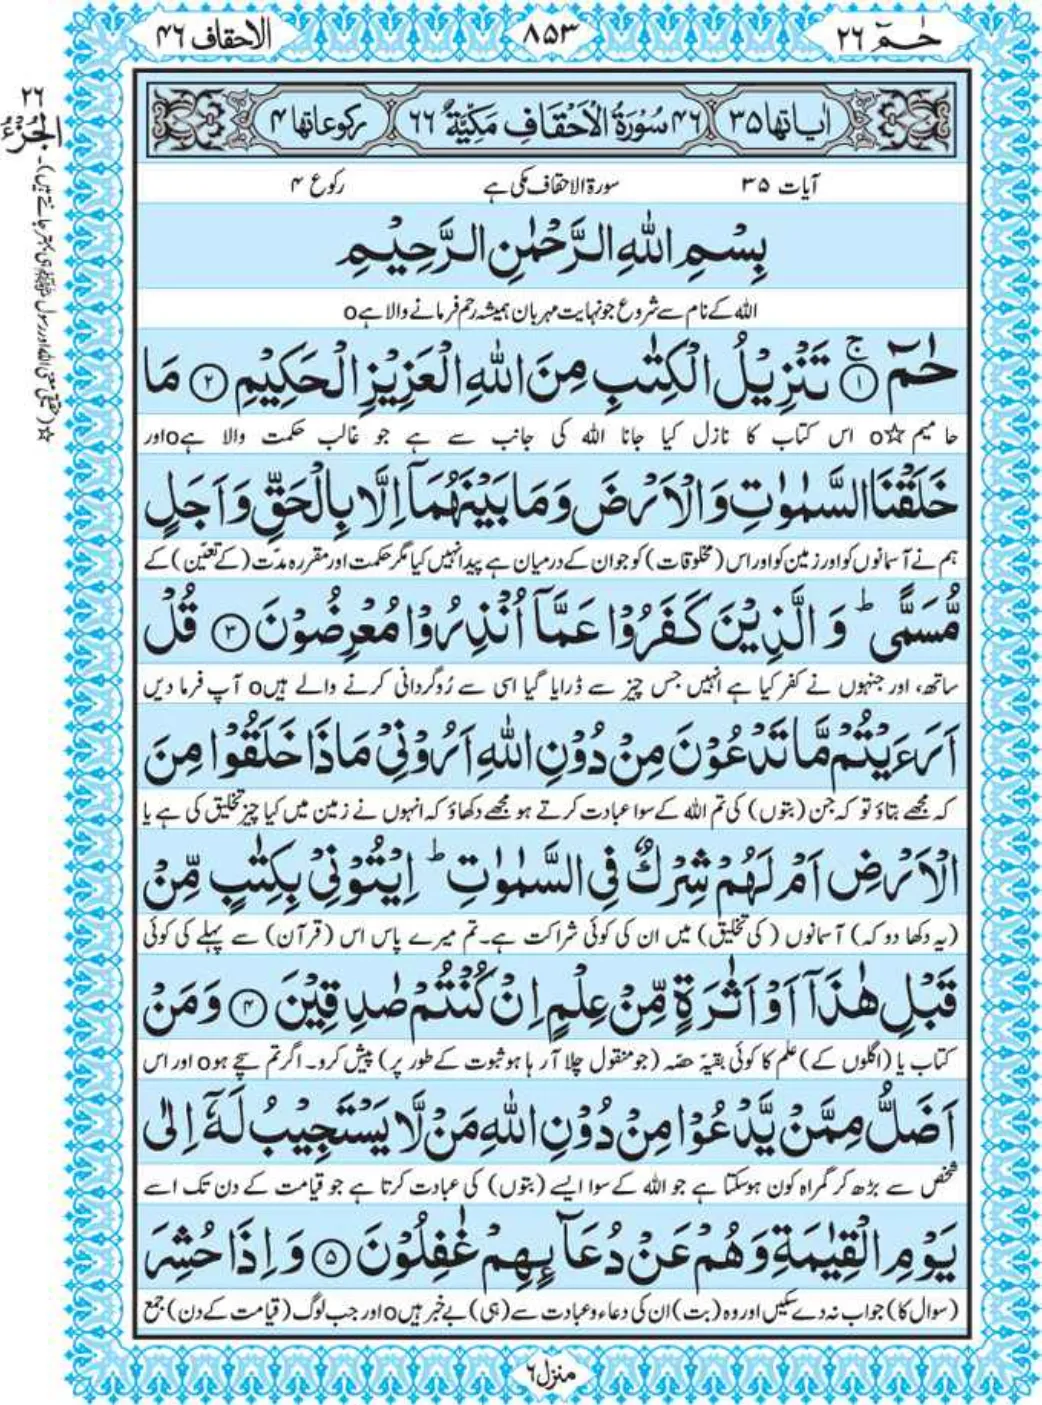 حٰمٓ ٢٦
٨٥٣
الاحقاف ٤٦
اٰیاتھا ٣٥
٤٦ سُوْرَةُ الْاَحْقَافِ مَکِّیَّةٌ ٦٦
رکوعاتھا ٤
آیات ٣٥ سورۃ الاحقاف مکی ہے رکوع ٤
بِسْمِ اللّٰهِ الرَّحْمٰنِ الرَّحِیْمِ
اللہ کے نام سے شروع جو نہایت مہربان ہمیشہ رحم فرمانے والا ہے o
حٰمٓ ۚ ﴿١﴾ تَنْزِیْلُ الْکِتٰبِ مِنَ اللّٰهِ الْعَزِیْزِ الْحَکِیْمِ ﴿٢﴾ مَا
حا میم ☆o اس کتاب کا نازل کیا جانا اللہ کی جانب سے ہے جو غالب حکمت والا ہے o اور
خَلَقْنَا السَّمٰوٰتِ وَ الْاَرْضَ وَ مَا بَیْنَهُمَاۤ اِلَّا بِالْحَقِّ وَ اَجَلٍ
ہم نے آسمانوں کو اور زمین کو اور اس (مخلوقات) کو جو ان کے درمیان ہے پیدا نہیں کیا مگر حکمت اور مقررہ مدّت (کے تعیّن) کے
مُّسَمًّی ؕ وَ الَّذِیْنَ کَفَرُوْا عَمَّاۤ اُنْذِرُوْا مُعْرِضُوْنَ ﴿٣﴾ قُلْ
ساتھ، اور جنہوں نے کفر کیا ہے انہیں جس چیز سے ڈرایا گیا اسی سے رُوگردانی کرنے والے ہیں o آپ فرما دیں
اَرَءَیْتُمْ مَّا تَدْعُوْنَ مِنْ دُوْنِ اللّٰهِ اَرُوْنِیْ مَاذَا خَلَقُوْا مِنَ
کہ مجھے بتاؤ تو کہ جن (بتوں) کی تم اللہ کے سوا عبادت کرتے ہو مجھے دکھاؤ کہ انہوں نے زمین میں کیا چیز تخلیق کی ہے یا
الْاَرْضِ اَمْ لَهُمْ شِرْكٌ فِی السَّمٰوٰتِ ؕ اِیْتُوْنِیْ بِکِتٰبٍ مِّنْ
(یہ دکھا دو کہ) آسمانوں (کی تخلیق) میں ان کی کوئی شراکت ہے۔ تم میرے پاس اس (قرآن) سے پہلے کی کوئی
قَبْلِ هٰذَاۤ اَوْ اَثٰرَةٍ مِّنْ عِلْمٍ اِنْ کُنْتُمْ صٰدِقِیْنَ ﴿٤﴾ وَ مَنْ
کتاب یا (اگلوں کے) علم کا کوئی بقیہ حصّہ (جو منقول چلا آ رہا ہو ثبوت کے طور پر) پیش کرو۔ اگر تم سچے ہو o اور اس
اَضَلُّ مِمَّنْ یَّدْعُوْا مِنْ دُوْنِ اللّٰهِ مَنْ لَّا یَسْتَجِیْبُ لَهٗۤ اِلٰی
شخص سے بڑھ کر گمراہ کون ہوسکتا ہے جو اللہ کے سوا ایسے (بتوں) کی عبادت کرتا ہے جو قیامت کے دن تک اسے
یَوْمِ الْقِیٰمَةِ وَ هُمْ عَنْ دُعَآىِٕهِمْ غٰفِلُوْنَ ﴿٥﴾ وَ اِذَا حُشِرَ
(سوال کا) جواب نہ دے سکیں اور وہ (بت) ان کی دعاء و عبادت سے (ہی) بے خبر ہیں o اور جب لوگ (قیامت کے دن) جمع
منزل ٦
٢٦
الجُزْءُ
☆ (حقیقی معنی اللہ اور رسول ﷺ ہی بہتر جانتے ہیں)۔